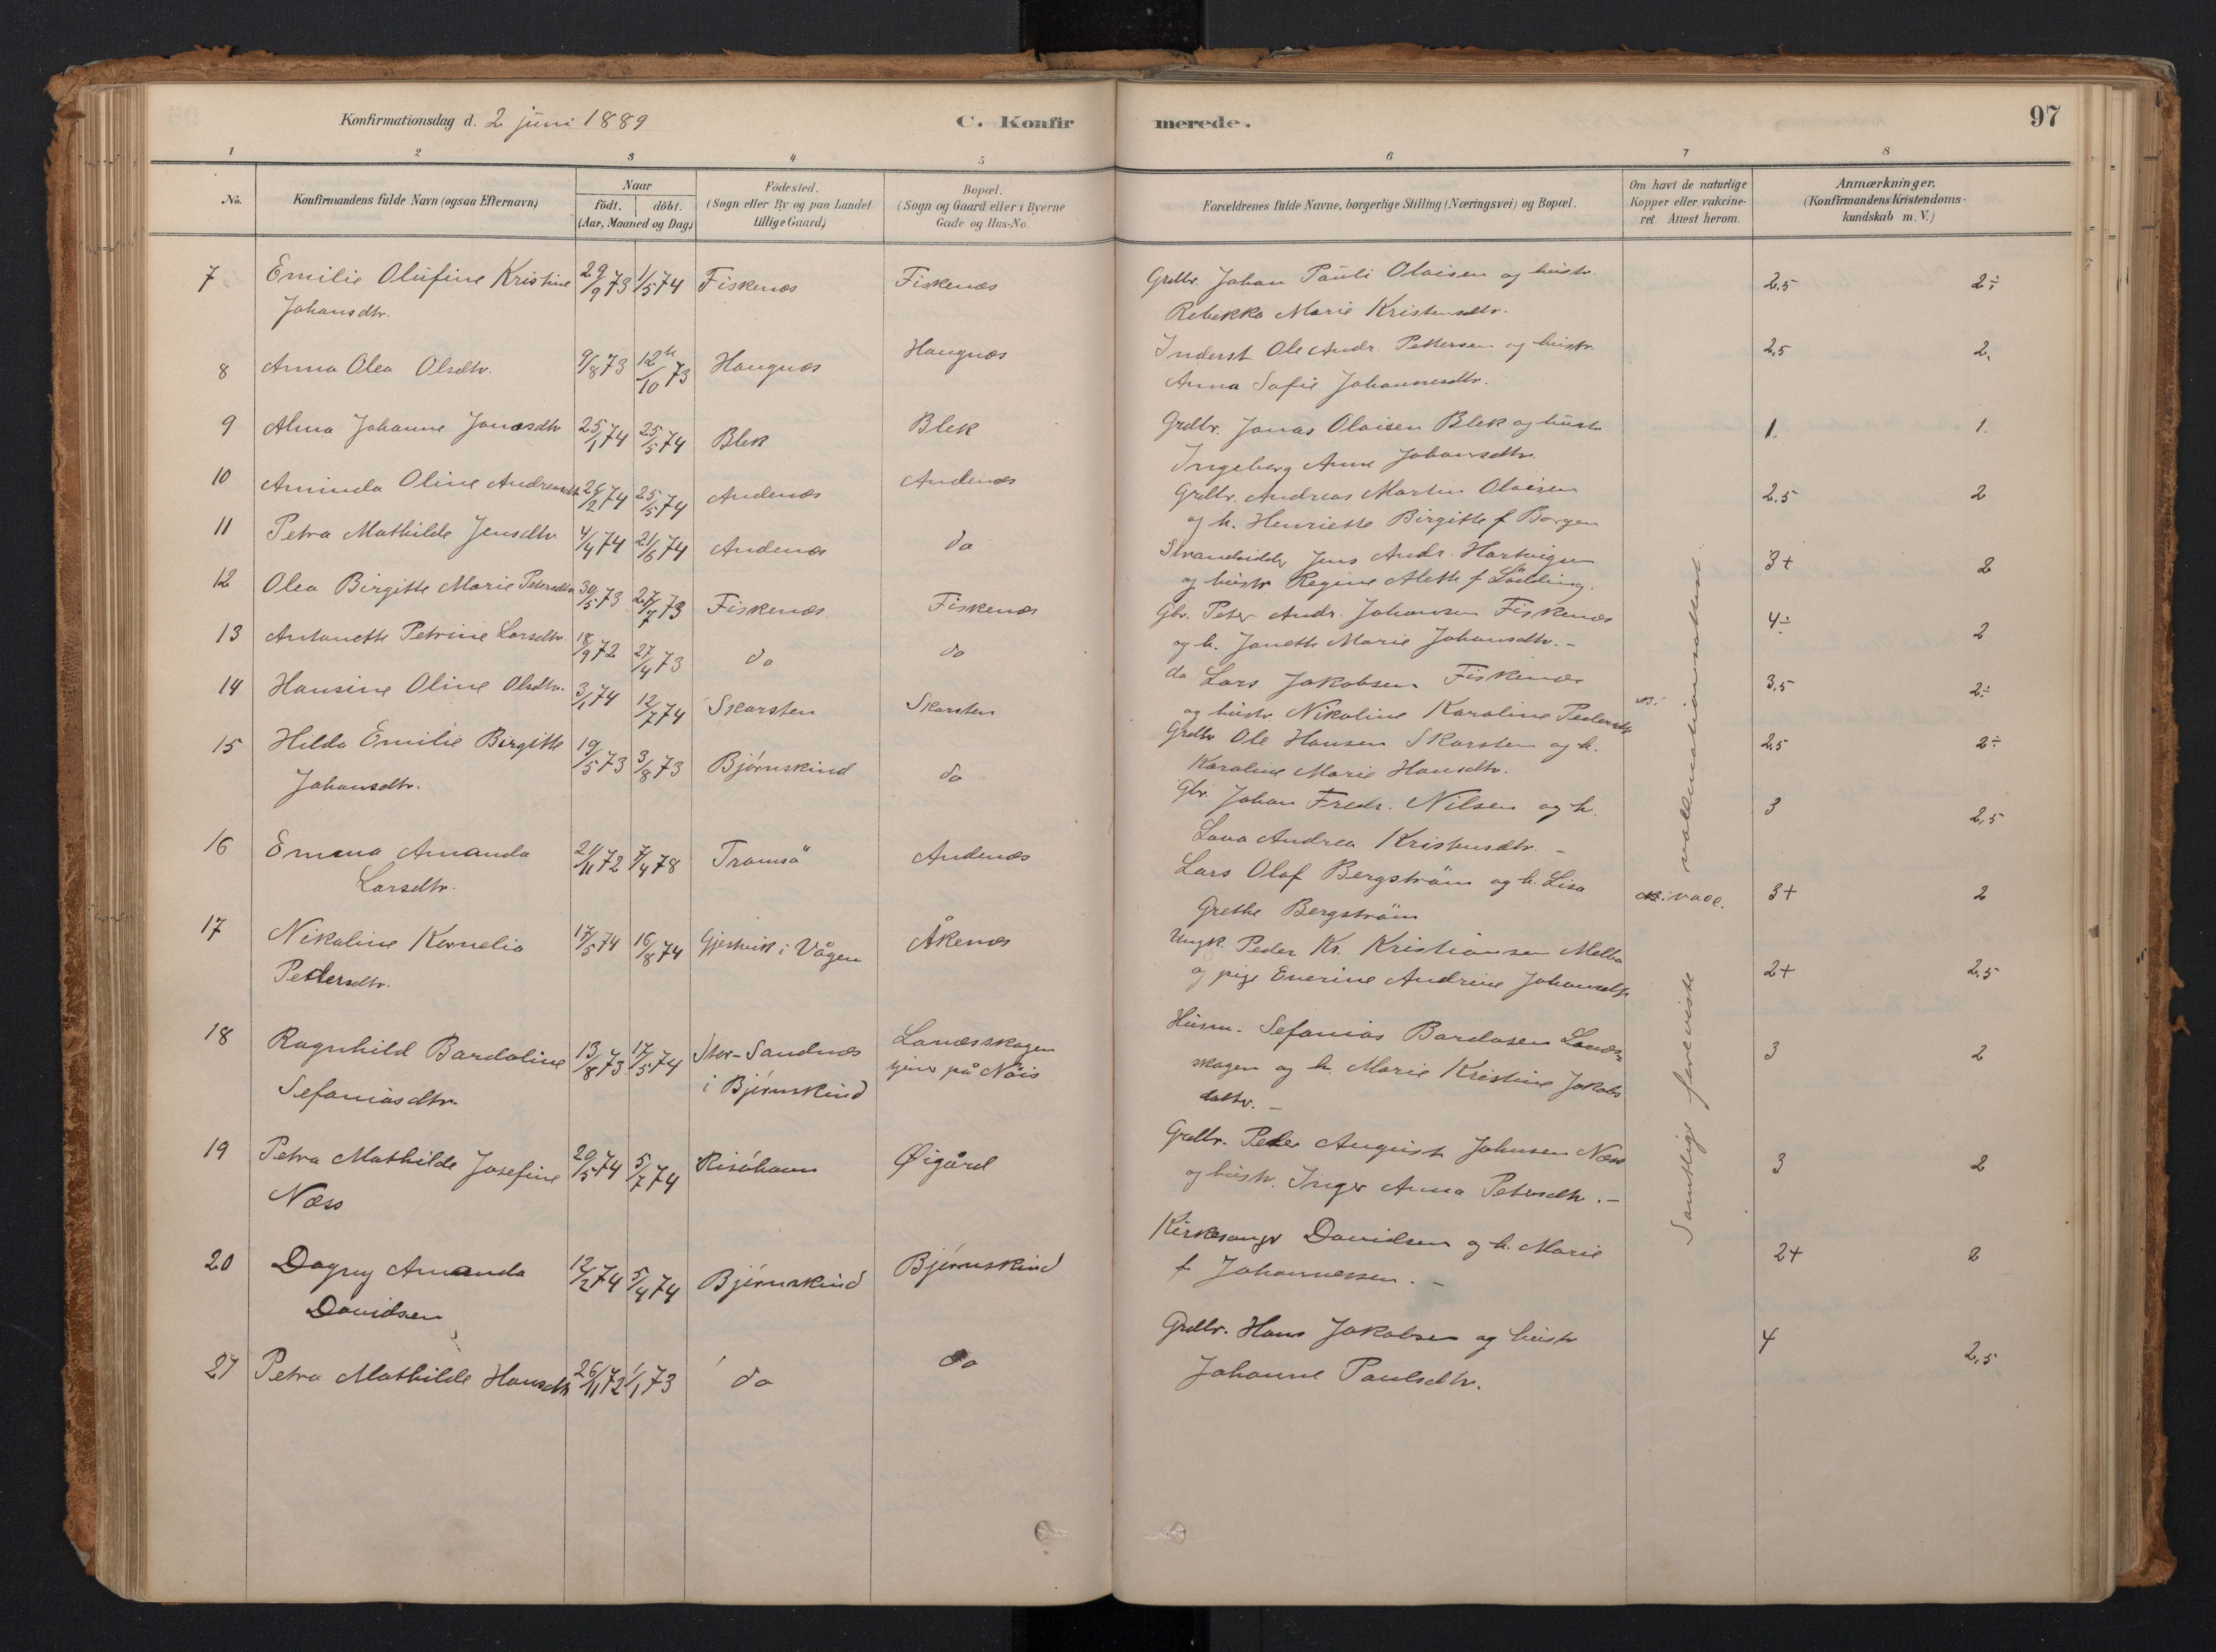 Konfirmationsdag d. 2 juni 1889
C. Konfirmerede.
97
1 2 3 4 5 6 7 8
No.
Konfirmandens fulde Navn (ogsaa Efternavn)
Naar
födt. döbt.
(Aar, Maaned og Dag)
Födested.
(Sogn eller By og paa Landet
tillige Gaard)
Bopæl.
(Sogn og Gaard eller i Byerne
Gade og Hus-No.
Forældrenes fulde Navne, borgerlige Stilling (Næringsvei) og Bopæl.
Om havt de naturlige
Kopper eller vakcine-
ret. Attest herom.
Anmærkninger.
(Konfirmandens Kristendoms-
kundskab m. V.)
7 Emilie Olufine Kristine 29/9 73 1/5 74 Fiskenæs Fiskenæs Grdbr. Johan Pauli Olaisen og hustr. 2.5 2÷
Johansdtr. Rebekka Marie Kristensdtr.
8 Anna Olea Olsdtr. 9/8 73 12/10 73 Haugnæs Haugnæs Inderst Ole Andr. Pettersen og hustr. 2,5 2.
Anna Sofie Johannesdtr.
9 Alma Johanne Jonasdtr 25/1 74 25/5 74 Blek Blek Grdbr. Jonas Olaisen Blek og hustr 1. 1.
Ingeborg Anne Johansdtr.
10 Aminda Oline Andreasdtr 26/2 74 25/5 74 Andenæs Andenæs Grdbr. Andreas Martin Olaisen 2.5 2
og h. Henriette Birgitte f Borgen
11 Petra Mathilde Jensdtr 4/4 74 21/6 74 Andenæs do Strandsidder Jens Andr. Hartvigsen 3+ 2
og hustr Regine Aleth f Lödding.
12 Olea Birgitte Marie Petersdtr 30/5 73 27/7 73 Fiskenæs Fiskenæs Gbr. Peter Andr. Johansen Fiskenæs 4÷ 2
og h. Janette Marie Johansdtr. –
13 Antonette Petrine Larsdtr. 18/9 72 27/4 73 do do do Lars Jakobsen Fiskenæs 3.5 2÷
og hustr. Nikoline Karoline Pedersdtr
14 Hansine Oline Olsdtr. 3/1 74 12/7 74 Skarsten Skarsten Grdbr Ole Hansen Skarsten og h. 2.5 2÷
Karoline Marie Hansdtr.
15 Hilda Emilie Birgitte 19/5 73 3/8 73 Bjørnskind do Gbr. Johan Fredr. Nilsen og h. 3 2,5
Johansdtr. Lava Andrea Kristensdtr. –
16 Emma Amanda 21/11 72 7/4 78 Tromsö Andenæs Lars Olaf Bergström og h. Lisa vacc. 3+ 2
Larsdtr. Grethe Bergström
17 Nikoline Kornelia 17/5 74 16/8 74 Gjesvik i Vågen Åkenæs Ungk. Peder Kr. Kristiansen Melbo 2+ 2,5
Pettersdtr. og pige Enerine Andrine Johansdtr
18 Ragnhild Bardoline 13/8 73 17/5 74 Stor-Sandnæs Lanæsskogen Husm. Sefanias Bardosen Lanæs- 3 2
Sefaniasdtr. i Bjørnskind tjener på Nöis skogen og h. Marie Kristine Jakobs
datter. –
19 Petra Mathilde Josefine 20/5 74 5/7 74 Risøhavn Øigård Grdbr. Peder August Johnsen Næss 3 2
Næss og hustr. Inger Anna Petersdtr. –
20 Dagny Amanda 12/2 74 5/4 74 Bjørnskind Bjørnskind Kirkesanger Davidsen og h. Marie 2+ 2
Davidsen f Johannessen. –
21 Petra Mathilde Hansdtr 26/11 72 1/1 73 do do Grdbr. Hans Jakobsen og hustr 4 2,5
Johanne Paulsdtr.
Samtlige foreviste vakcinationsattest.